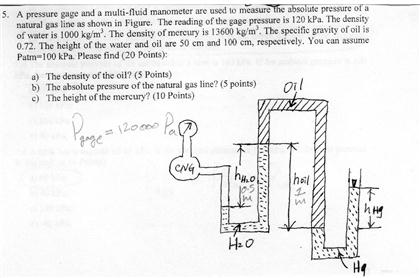 5. A pressure gage and a multi-fluid manometer are used to measure the absolute pressure of a
natural gas line as shown in Figure. The reading of the gage pressure is 120 kPa. The density
of water is 1000 kg/m³. The density of mercury is 13600 kg/m³. The specific gravity of oil is
0.72. The height of the water and oil are 50 cm and 100 cm, respectively. You can assume
Patm=100 kPa. Please find (20 Points):
a) The density of the oil? (5 Points)
b) The absolute pressure of the natural gas line? (5 points)
c) The height of the mercury? (10 Points)
Oil
Pgage = 120000 Pa
P
CNG
hH2O
0.5
m
hoil
1
m
hHg
H2O
Hg